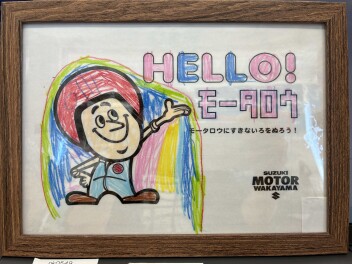 HELLO!
モータロウ
モータロウにすきないろをぬろう!
SUZUKI
MOTOR
WAKAYAMA